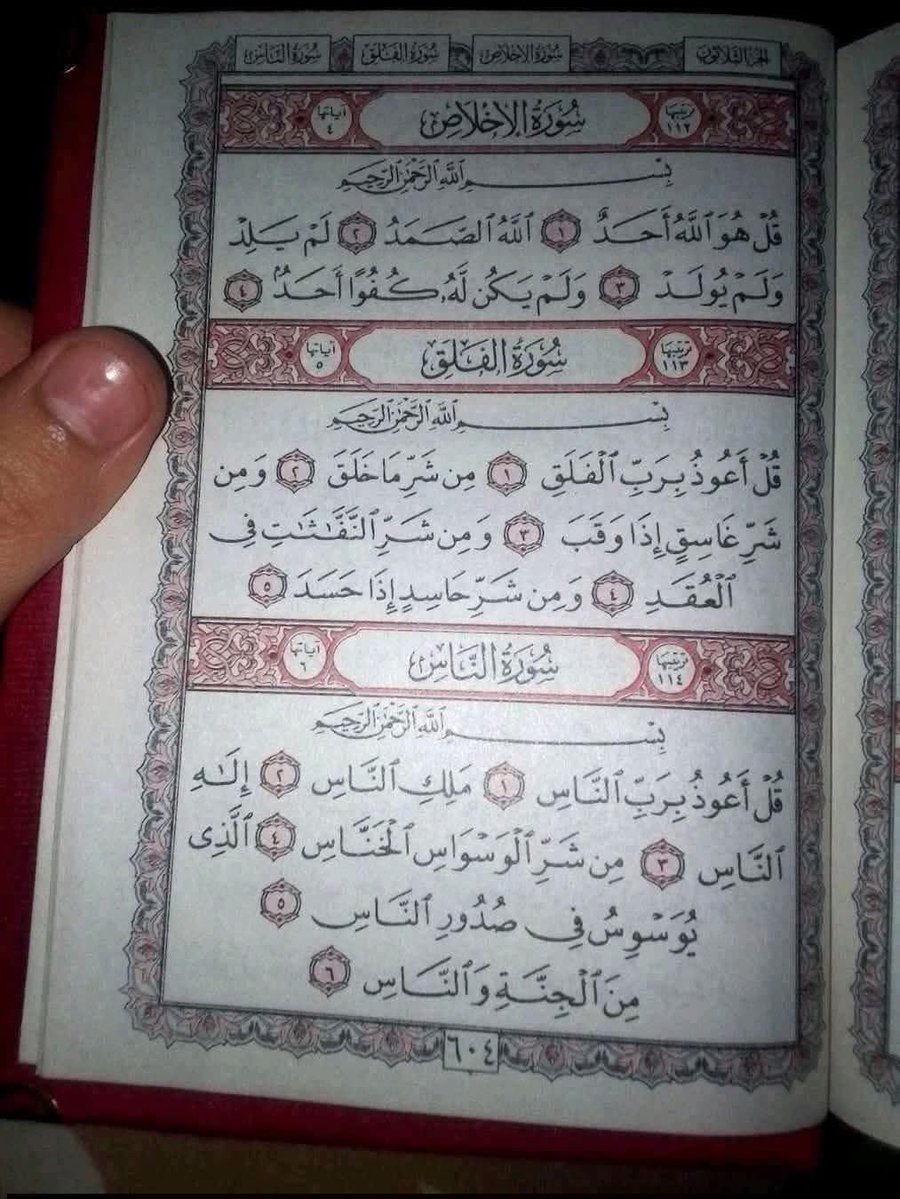 الجزء الثلاثون سُورَةُ الإِخْلَاصِ سُورَةُ الفَلَقِ سُورَةُ النَّاسِ
ترتيبها ١١٢ سُورَةُ الإِخْلَاصِ آياتها ٤
بِسْمِ ٱللَّهِ ٱلرَّحْمَٰنِ ٱلرَّحِيمِ
قُلْ هُوَ ٱللَّهُ أَحَدٌ ١ ٱللَّهُ ٱلصَّمَدُ ٢ لَمْ يَلِدْ
وَلَمْ يُولَدْ ٣ وَلَمْ يَكُن لَّهُۥ كُفُوًا أَحَدٌۢ ٤
ترتيبها ١١٣ سُورَةُ الفَلَقِ آياتها ٥
بِسْمِ ٱللَّهِ ٱلرَّحْمَٰنِ ٱلرَّحِيمِ
قُلْ أَعُوذُ بِرَبِّ ٱلْفَلَقِ ١ مِن شَرِّ مَا خَلَقَ ٢ وَمِن
شَرِّ غَاسِقٍ إِذَا وَقَبَ ٣ وَمِن شَرِّ ٱلنَّفَّٰثَٰتِ فِى
ٱلْعُقَدِ ٤ وَمِن شَرِّ حَاسِدٍ إِذَا حَسَدَ ٥
ترتيبها ١١٤ سُورَةُ النَّاسِ آياتها ٦
بِسْمِ ٱللَّهِ ٱلرَّحْمَٰنِ ٱلرَّحِيمِ
قُلْ أَعُوذُ بِرَبِّ ٱلنَّاسِ ١ مَلِكِ ٱلنَّاسِ ٢ إِلَٰهِ
ٱلنَّاسِ ٣ مِن شَرِّ ٱلْوَسْوَاسِ ٱلْخَنَّاسِ ٤ ٱلَّذِى
يُوَسْوِسُ فِى صُدُورِ ٱلنَّاسِ ٥
مِنَ ٱلْجِنَّةِ وَٱلنَّاسِ ٦
٦٠٤